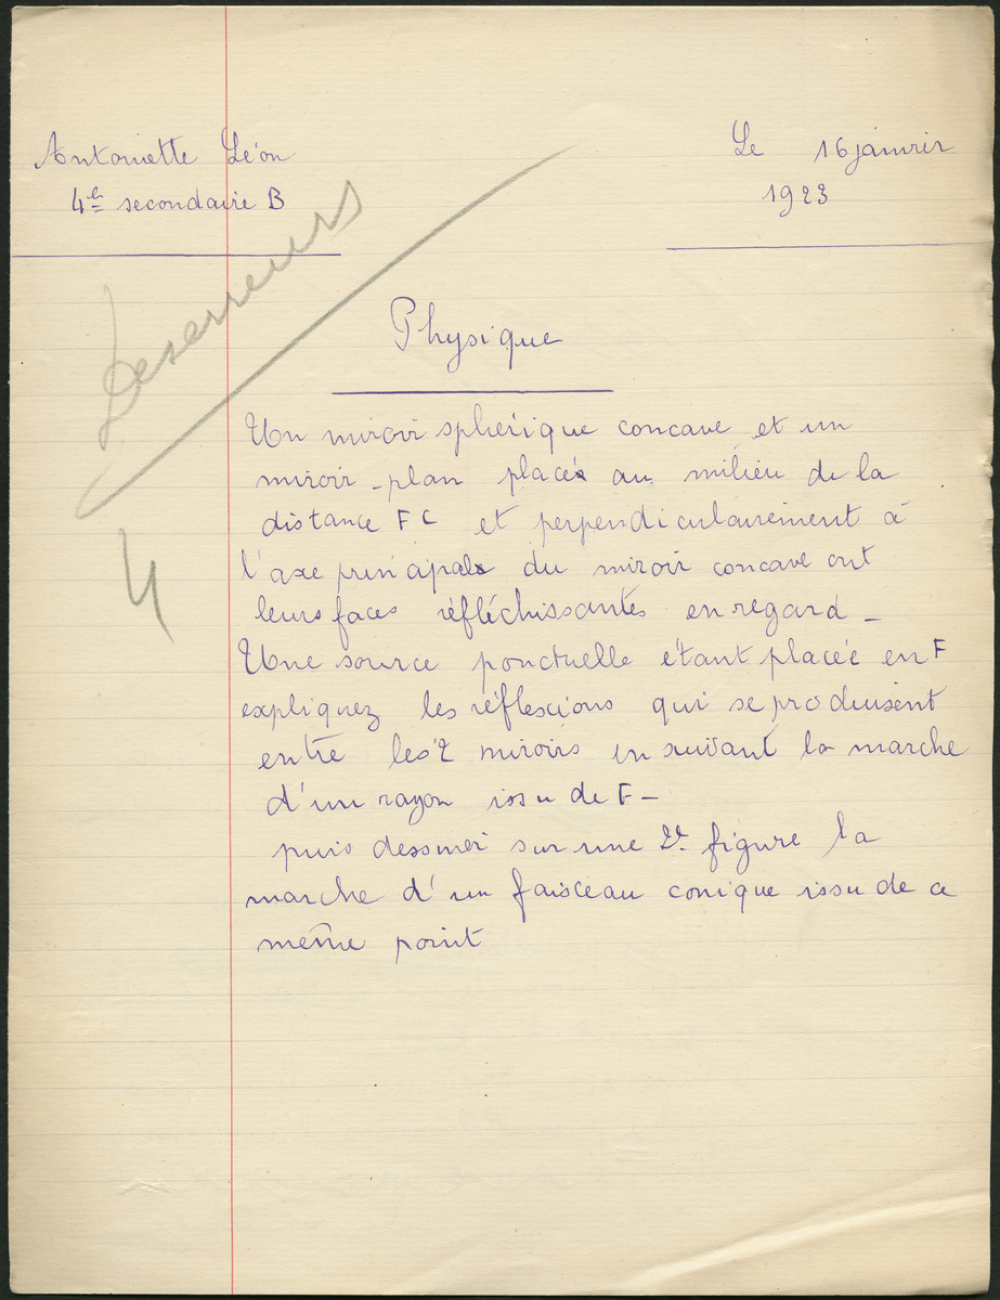 Antoinette Léon
Le 16 janvier
4e secondaire B
1923
Des erreurs
4
Physique
Un miroir sphérique concave et un
miroir-plan placés au milieu de la
distance F C et perpendiculairement à
l'axe principal du miroir concave ont
leurs faces réfléchissantes en regard _
Une source ponctuelle étant placée en F
expliquez les réflexions qui se produisent
entre les 2 miroirs en suivant la marche
d'un rayon issu de F _
puis dessiner sur une 2e figure la
marche d'un faisceau conique issu de ce
même point